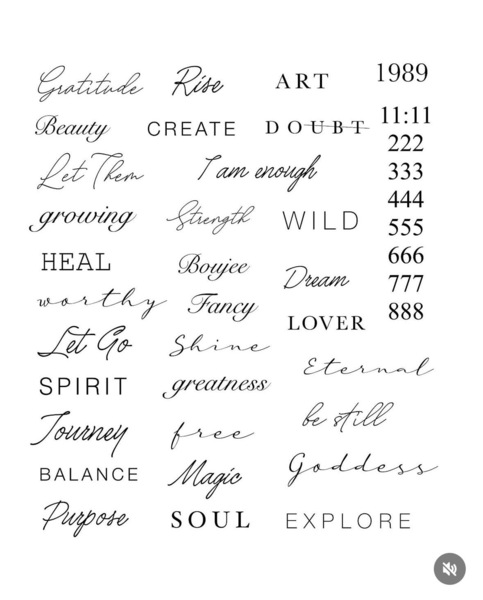 Gratitude Rise ART 1989
Beauty CREATE DOUBT 11:11
222
Let Them I am enough 333
444
growing Strength WILD 555
HEAL Boujee 666
Dream 777
worthy Fancy 888
LOVER
Let Go Shine
Eternal
SPIRIT greatness
be still
Journey free
Goddess
BALANCE Magic
Purpose SOUL EXPLORE